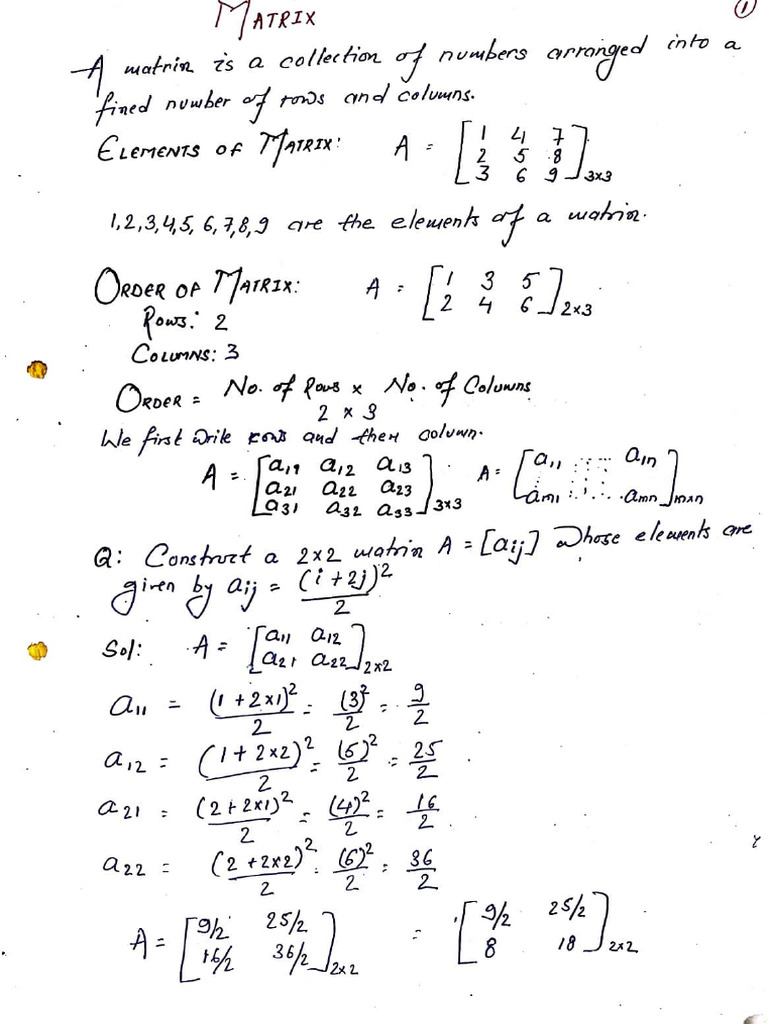 MATRIX
1
A matrix is a collection of numbers arranged into a
fixed number of rows and columns.
ELEMENTS OF MATRIX: A = [1 4 7
2 5 8
3 6 9]3x3
1,2,3,4,5, 6, 7,8,9 are the elements of a matrix.
ORDER OF MATRIX: A = [1 3 5
2 4 6]2x3
Rows: 2
COLUMNS: 3
ORDER = No. of Rows x No. of Columns
2 x 3
We first write rows and then column.
A = [a11 a12 a13
a21 a22 a23
a31 a32 a33]3x3
A = [a11 ..... a1n
am1 ..... amn]mxn
Q: Construct a 2x2 matrix A = [aij] whose elements are
given by aij = (i + 2j)²/2
Sol: A = [a11 a12
a21 a22]2x2
a11 = (1 + 2x1)²/2 = (3)²/2 = 9/2
a12 = (1 + 2x2)²/2 = (5)²/2 = 25/2
a21 = (2 + 2x1)²/2 = (4)²/2 = 16/2
a22 = (2 + 2x2)²/2 = (6)²/2 = 36/2
A = [9/2 25/2
16/2 36/2]2x2 = [9/2 25/2
8 18]2x2